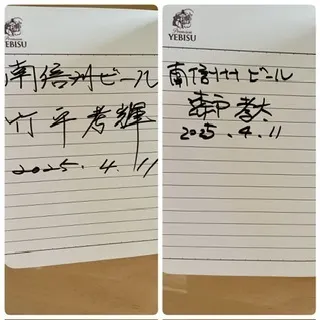 Premium
YEBISU
南信州ビール
竹平考輝
2025.4.11
Premium
YEBISU
南信州ビール
孝大
2025.4.11